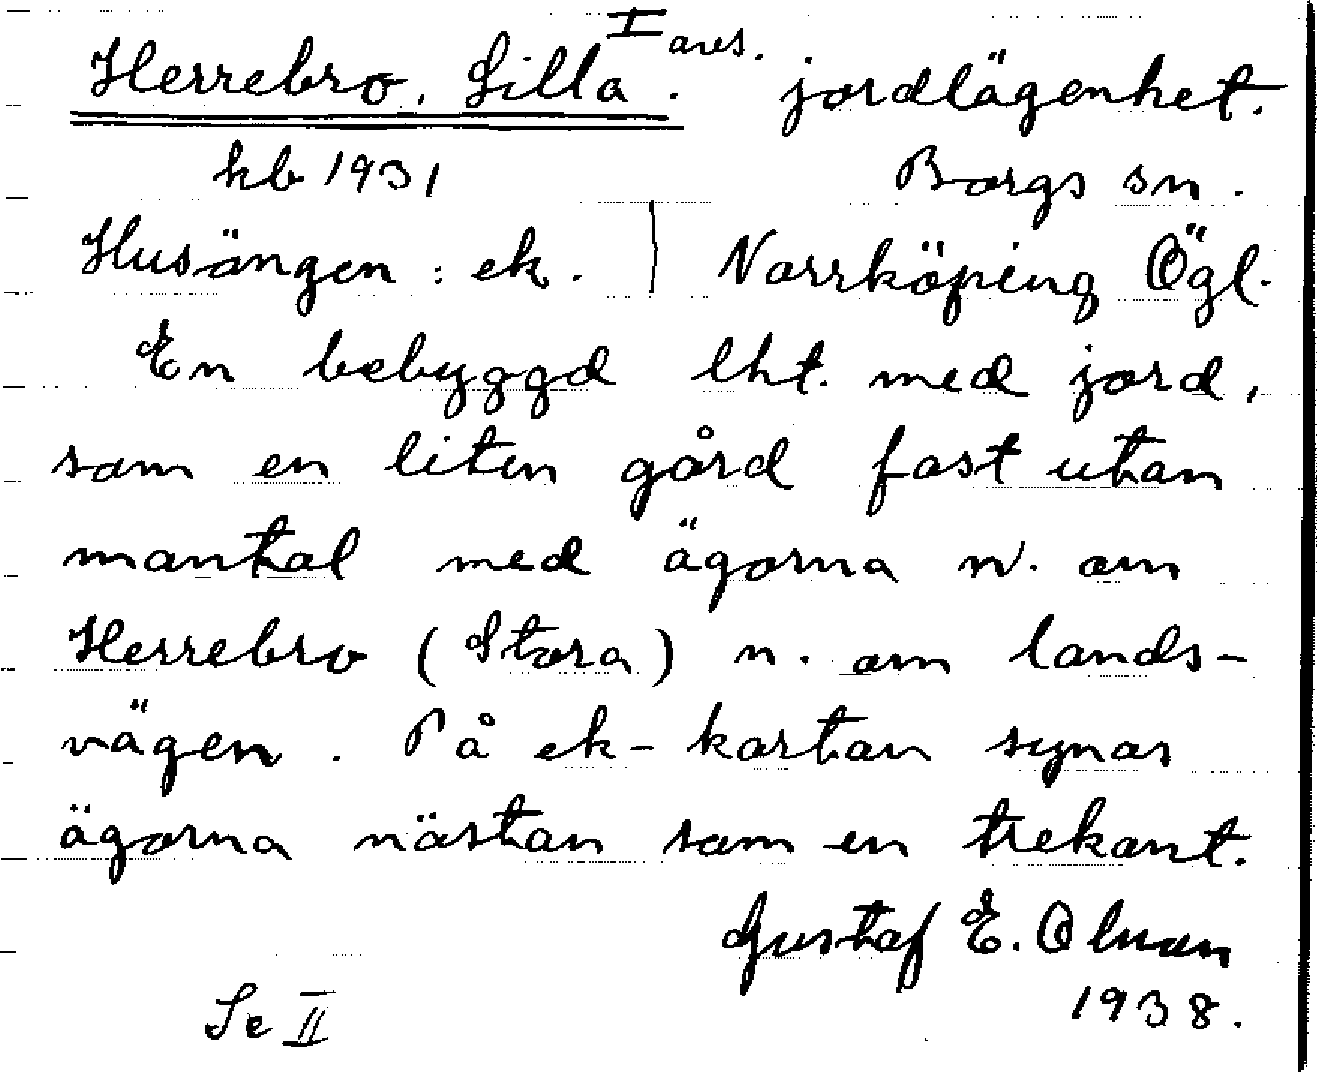 Herrebro, Lilla. I avs. jordlägenhet.
kb 1931 Borgs sn.
Husängen : ek. | Norrköping Ögl.
En bebyggd lht. med jord,
som en liten gård fast utan
mantal med ägorna n. om
Herrebro (Stora) n. om lands-
vägen. På ek-kartan synas
ägorna nästan som en trekant.
Gustaf E. Olman
1938.
Se II